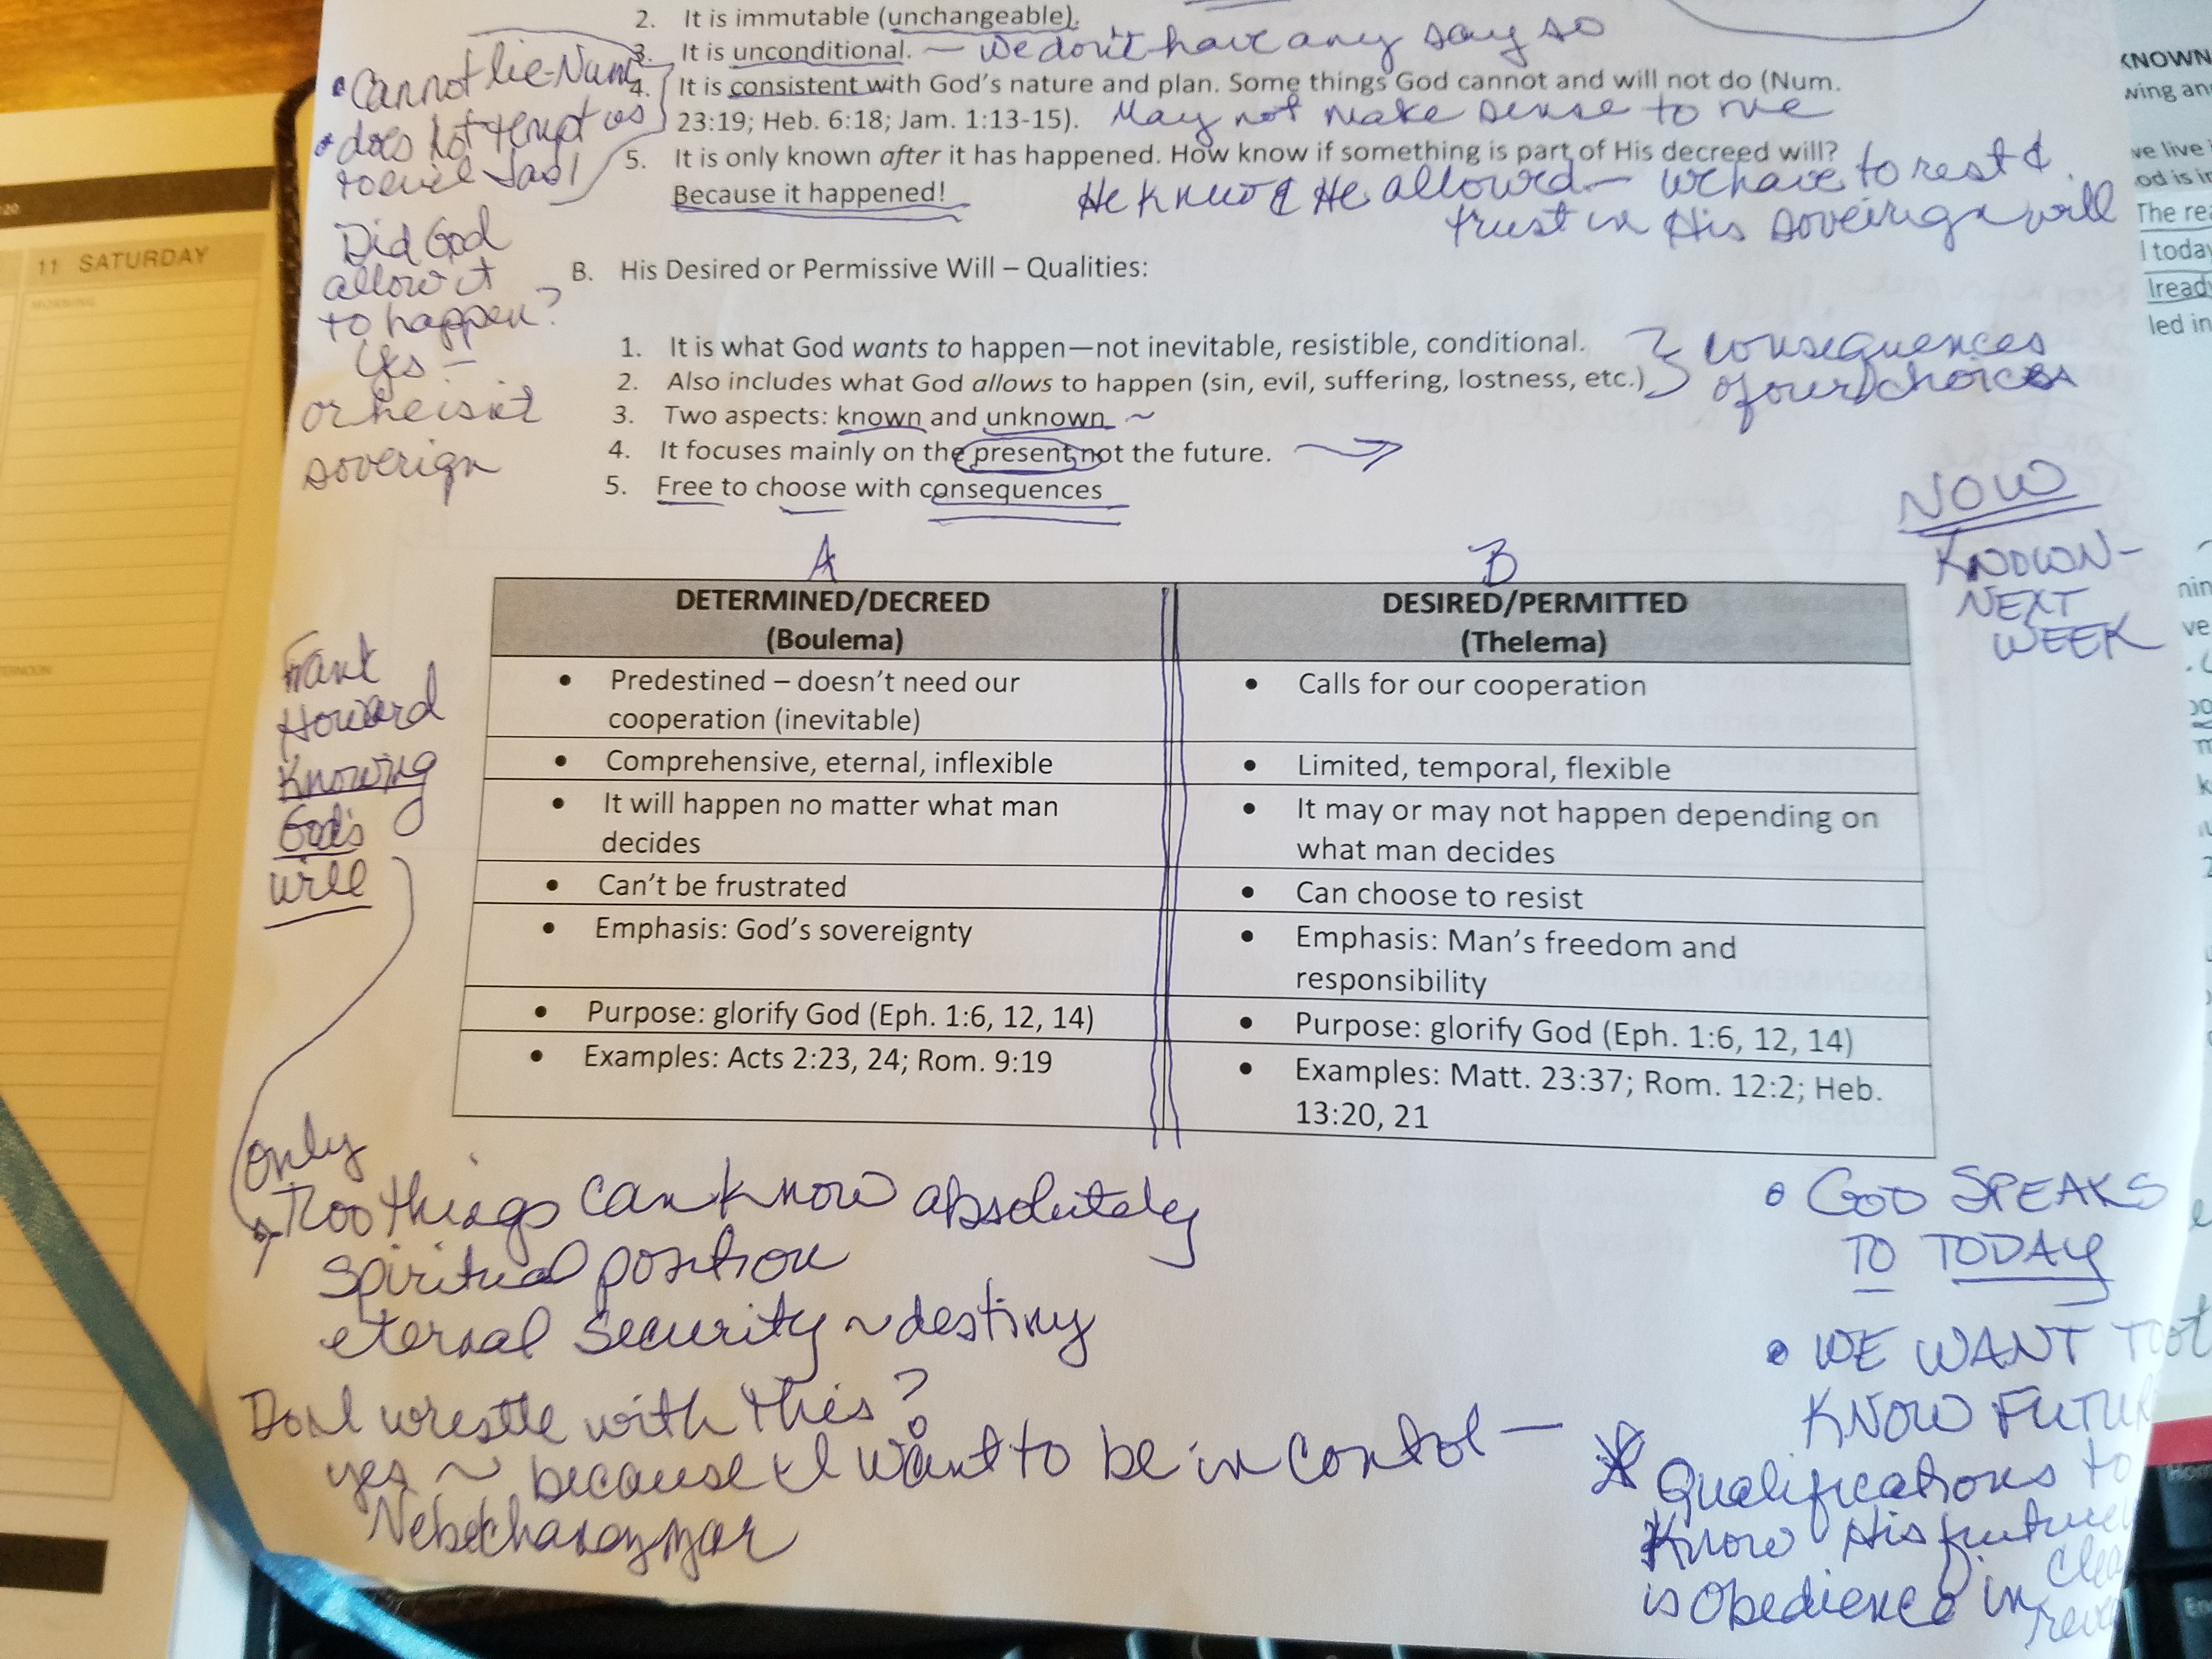 2. It is immutable (unchangeable).
3. It is unconditional. — We don't have any say so
4. It is consistent with God's nature and plan. Some things God cannot and will not do (Num.
23:19; Heb. 6:18; Jam. 1:13-15). May not make sense to me
5. It is only known after it has happened. How know if something is part of His decreed will?
Because it happened! He knew & He allowed — we have to rest &
trust in His soveirign will
• Cannot lie - Num
• does not tempt us
to evil Jas 1
Did God
allow it
to happen?
Yes —
or he isn't
soverign
B. His Desired or Permissive Will – Qualities:
1. It is what God wants to happen—not inevitable, resistible, conditional.
2. Also includes what God allows to happen (sin, evil, suffering, lostness, etc.)
consequences
of our choices
3. Two aspects: known and unknown ~
4. It focuses mainly on the present, not the future.
5. Free to choose with consequences
NOW
KNOWN -
NEXT
WEEK
A
B
DETERMINED/DECREED
(Boulema)
DESIRED/PERMITTED
(Thelema)
• Predestined – doesn't need our
cooperation (inevitable)
• Calls for our cooperation
• Comprehensive, eternal, inflexible
• Limited, temporal, flexible
• It will happen no matter what man
decides
• It may or may not happen depending on
what man decides
• Can't be frustrated
• Can choose to resist
• Emphasis: God's sovereignty
• Emphasis: Man's freedom and
responsibility
• Purpose: glorify God (Eph. 1:6, 12, 14)
• Purpose: glorify God (Eph. 1:6, 12, 14)
• Examples: Acts 2:23, 24; Rom. 9:19
• Examples: Matt. 23:37; Rom. 12:2; Heb.
13:20, 21
Howard
Knowing
God's
will
only
things can know absolutely
Spiritual position
eternal security ~ destiny
Do I wrestle with this?
yes ~ because I want to be in control —
• GOD SPEAKS
TO TODAY
• WE WANT TO
KNOW
Qualifications to
Know His future
is Obedience in
11 SATURDAY
MORNING
KNOWN
ve live
The rea
I today
led in